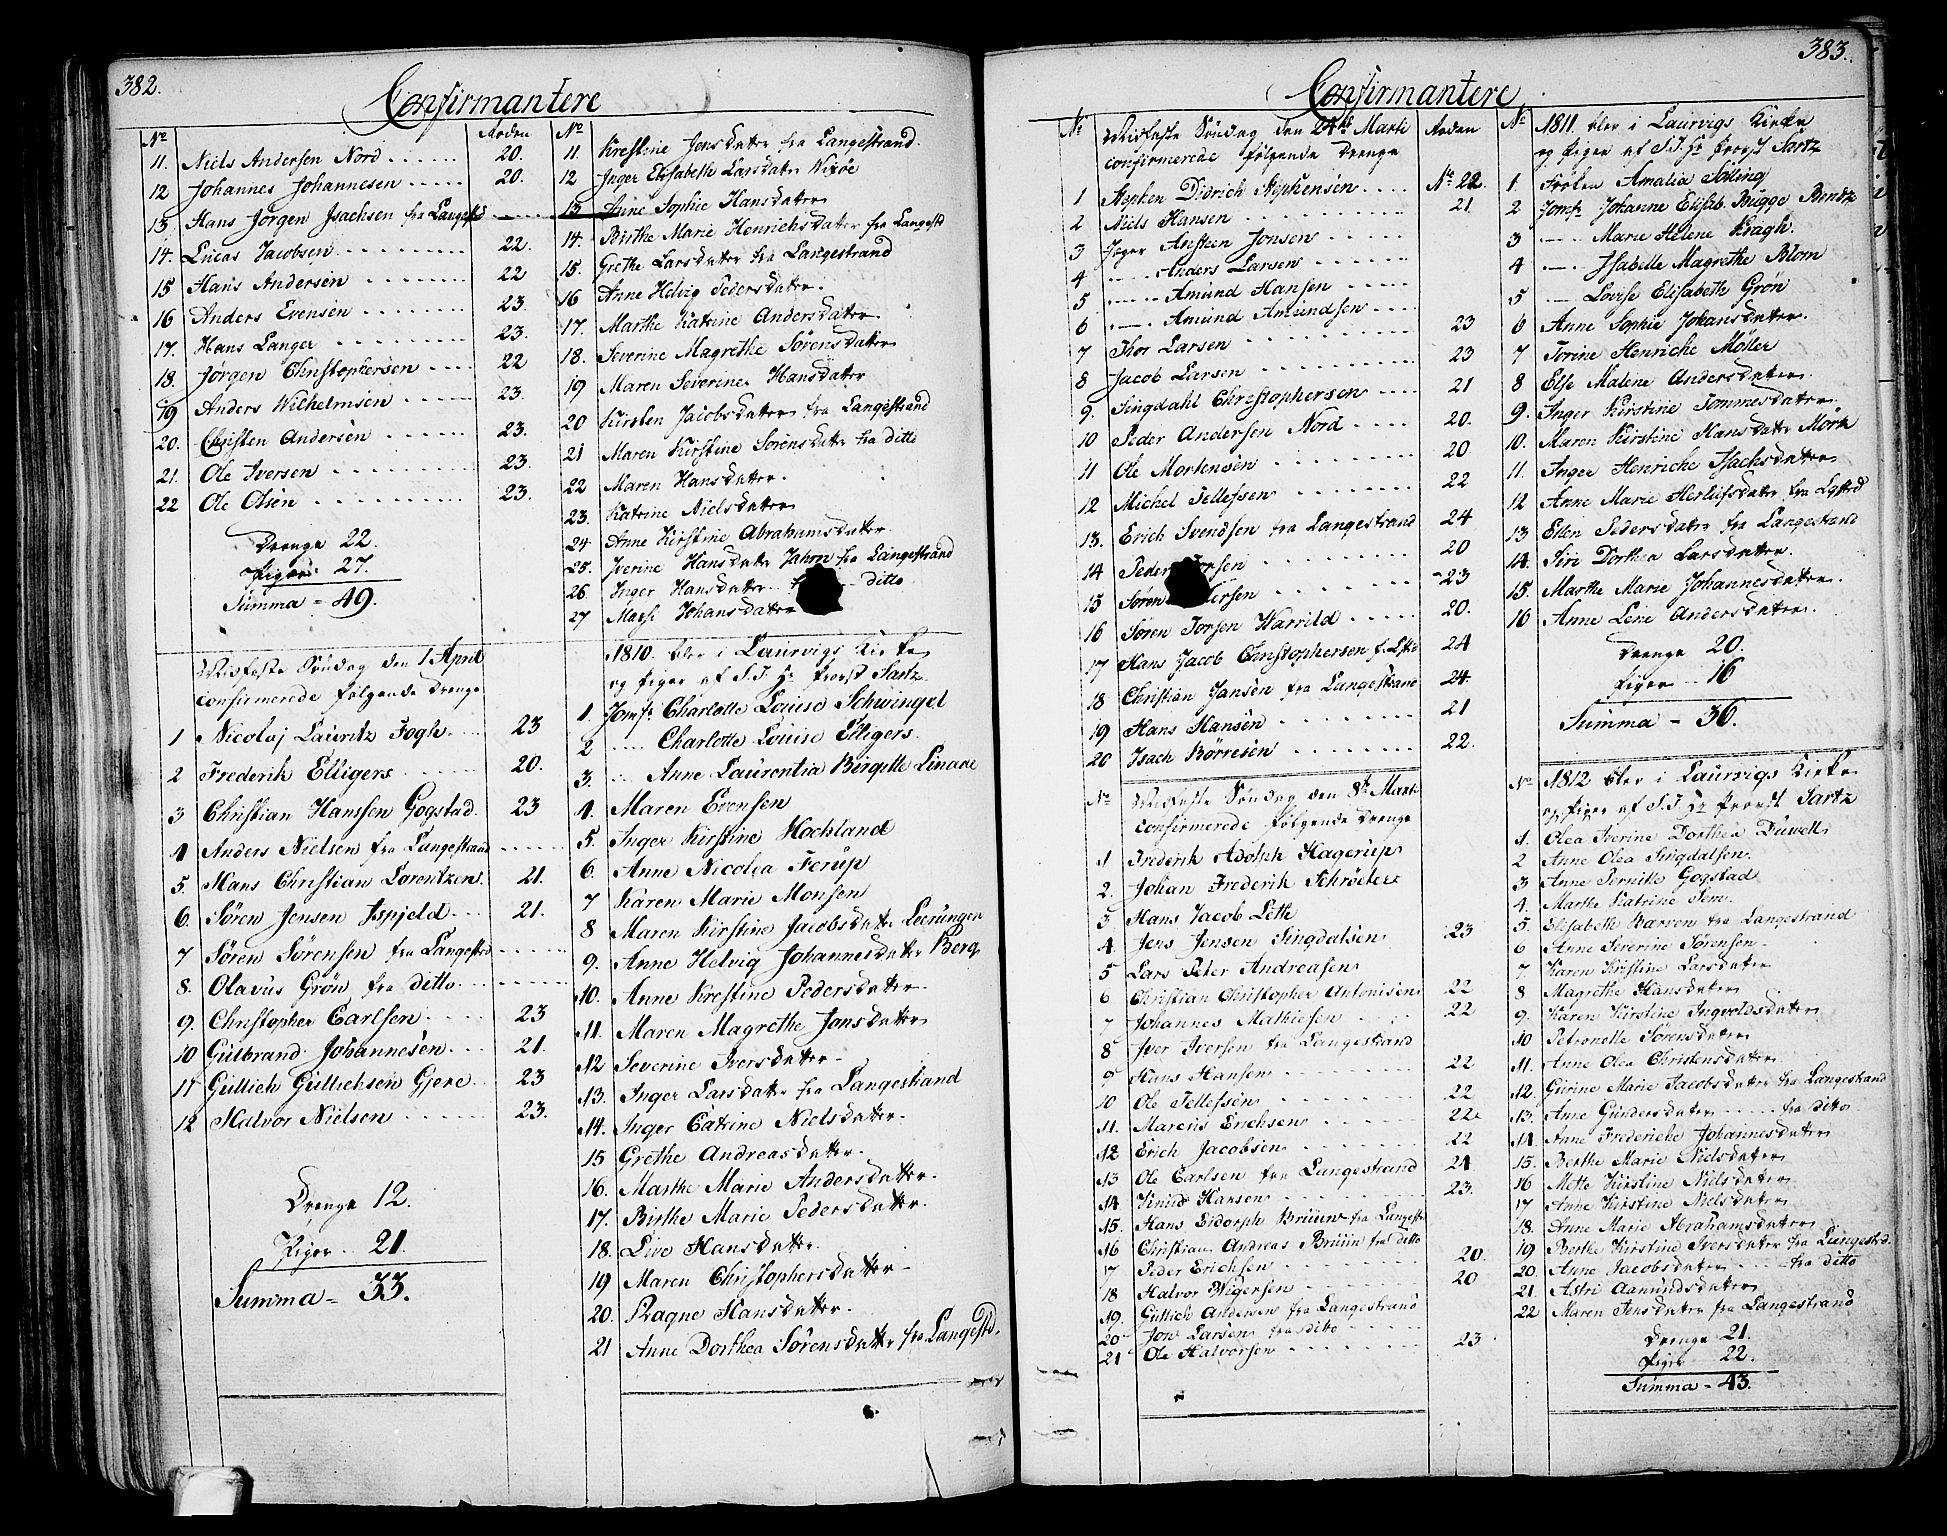 382.
Confirmantere
No
11. Niels Andersen Nord ...... 20.
12 Johannes Johannesen ..... 20.
13 Hans Jörgen Isachsen fra Langestd
14. Lucas Jacobsen ........ 22.
15 Hans Andersen ........ 22
16 Anders Evensen ........ 23.
17. Hans Langer ......... 23.
18. Jörgen Christophersen .... 22
19 Anders Wilhelmsen ...... 23.
20. Christen Andersen ...... 23.
21. Ole Iversen .......... 23.
22 Ole Olsen .......... 23.
Drenge 22.
Piger 27.
Summa = 49.
No
11. Krestine Jonsdatter fra Langestrand.
12 Inger Elisabeth Larsdatter
13. Anne Sophie Hansdatter
14. Birthe Marie Henrichsdatter fra Langestd
15. Grethe Larsdatter fra Langestrand
16 Anne Helvig Pedersdatter.
17. Marthe Katrine Andersdatter
18. Severine Magrethe Sörensdatter
19 Maren Severine Hansdatter
20 Kirsten Jacobsdatter fra Langestrand
21 Maren Kirstine Sörensdatter fra ditto
22 Maren Hansdatter.
23. Katrine Nielsdatter
24. Anne Kirstine Abrahamsdatter
25. Iverine Hansdatter Jahrn fra Langestrand
26. Inger Hansdatter ditto
27 Johansdatter
Söndag den 1 April
confirmerede følgende Drenge
1 Nicolaj Lauritz Fogh. 23
2 Frederik Elligers 20.
3 Christian Hanssen Gogstad. 23
4 Anders Nielsen fra Langestrand
5. Hans Christian Lorentzen. 21.
6. Sören Jensen Ispjeld. 21.
7 Sören Sörensen fra Langestd
8. Olavus Grön fra ditto
9. Christopher Carlsen 23
10 Gulbrand Johannesen 21.
11 Gullich Gullichsen Gjere 23
12 Halvor Nielsen 23.
Drenge 12.
Piger 21.
Summa = 33.
1810. blev i Laurvigs Kirke
og piger af S.T. Hr Provst Sartz
1. Jomfr Charlotte Louise Schwingel
2 ..... Charlotte Louise Elligers.
3. ... Anne Laurentia Birgitte Linaae
4. Maren Evensen
5. Inger Kirstine Hochland
6. Anne Nicolea Ferup
7 Karen Marie Monsen
8 Maren Kirstine Jacobsdatter Leerungen
9. Anne Helvig Johannesdatter Berg
10. Anne Krestine Pedersdatter
11. Maren Magrethe Jonsdatter
12 Severine Iversdatter
13. Inger Larsdatter fra Langestrand
14. Inger Catrine Nielsdatter.
15 Grethe Andreasdatter.
16. Marthe Marie Andersdatter.
17. Birthe Marie Pedersdatter.
18. Live Hansdatter.
19 Maren Christophersdatter
20. Ragne Hansdatter.
21 Anne Dorthea Sörensdatter fra Langestd.
383.
Confirmantere
No
Söndag den 24de Marti
confirmerede følgende Drenge
1 Stephen Didrich Stephensen .... No 22.
2 Niels Hansen ......... 21
3 Jæger Ansteen Jonsen
4 ---- Anders Larsen
5 ---- Amund Hansen
6 ---- Amund Amundsen
7 Thor Larsen 23
8 Jacob Larsen 23
9. Singdahl Christophersen 21
10 Peder Andersen Nord 20.
11 Ole Mortensen 20
12 Michel Tellefsen 22
13. Erich Svendsen fra Langestrand 24
14 Peder 20
15 Sören 23
16 Sören Torsen Warrild 20.
17 Hans Jacob Christophersen f. Lstd 24
18 Christian Jansen fra Langestrand 24.
19 Hans Hansen 21
20 Isach Börresen 22.
No 1811. blev i Laurvigs Kirke
og Piger af S.T. Hr Provst Sartz
1. Fröken Amalia Sölling
2 Jomfr Johanne Elisab. Bugge Berntz
3 --- Marie Helene Kragh.
4 --- Isabelle Magrethe Blom
5 --- Lovise Elisabeth Grön
6 Anne Sophie Johansdatter.
7 Torine Henriche Möller
8 Else Malene Andersdatter.
9. Inger Kirstine Tommesdatter
10. Maren Kirstine Hansdatter Mörk
11. Inger Henriche Isachsdatter
12 Anne Marie Herlufsdatter fra Lgstrd
13 Ellen Pedersdatter fra Langestrand
14. Siri Dorthea Larsdatter.
15. Marthe Marie Johannesdatter.
16 Anne Lene Andersdatter.
Drenge 20.
Piger 16
Summa = 36.
No Söndag den 8de Marti
confirmerede følgende Drenge
1 Frederik Adolph Hagerup
2. Johan Frederik Schröeter
3 Hans Jacob Leth
4 Jens Jensen Singdalsen 23
5 Lars Peter Andreasen
6 Christian Christopher Antonisen 22
7 Johannes Mathiesen 22
8 Iver Iversen fra Langestrand
9 Hans Hansen 22
10 Ole Tellefsen 22
11. Marcus Erichsen 22
12 Erich Jacobsen 22
13 Ole Carlsen fra Langestrand 21
14 Knud Hansen 23.
15. Hans Eidorph Bruun fra Langestr
16 Christian Andreas Bruun fra ditto
17 Peder Erichsen 20.
18 Halvor Wigersen 20
19. Gullich Andersen fra Langestrand
20 Jon Larsen fra ditto
21 Ole Halvorsen 23
No 1812 blev i Laurvigs Kirke
og Piger af S.T. Hr Provst Sartz
1. Olea Iverine Dorthea Duwell
2 Anne Olea Singdalsen.
3 Anne Pernille Gogstad
4. Marthe Katrine Sem.
5. Elisabeth Barven fra Langestrand
6 Anne Severine Sörensen
7 Karen Kristine Larsdatter
8 Magrethe Hansdatter
9. Karen Kirstine Ingvoldsdatter
10 Petronelle Sörensdatter
11. Anne Olea Christensdatter
12. Gurine Marie Jacobsdatter fra Langestrand
13. Anne Gundersdatter fra ditto
14. Anne Frederiche Johannesdatter
15. Berthe Marie Nielsdatter
16 Mette Kirstine Nielsdatter
17 Anne Kirstine Nielsdatter
18. Anne Marie Abrahamsdatter
19 Berthe Kirstine Iversdatter fra Langestrd.
20. Anne Jacobsdatter fra ditto
21. Astri Aamundsdatter
22. Maren Jensdatter fra Langestrand
Drenge 21.
Piger 22.
Summa = 43.